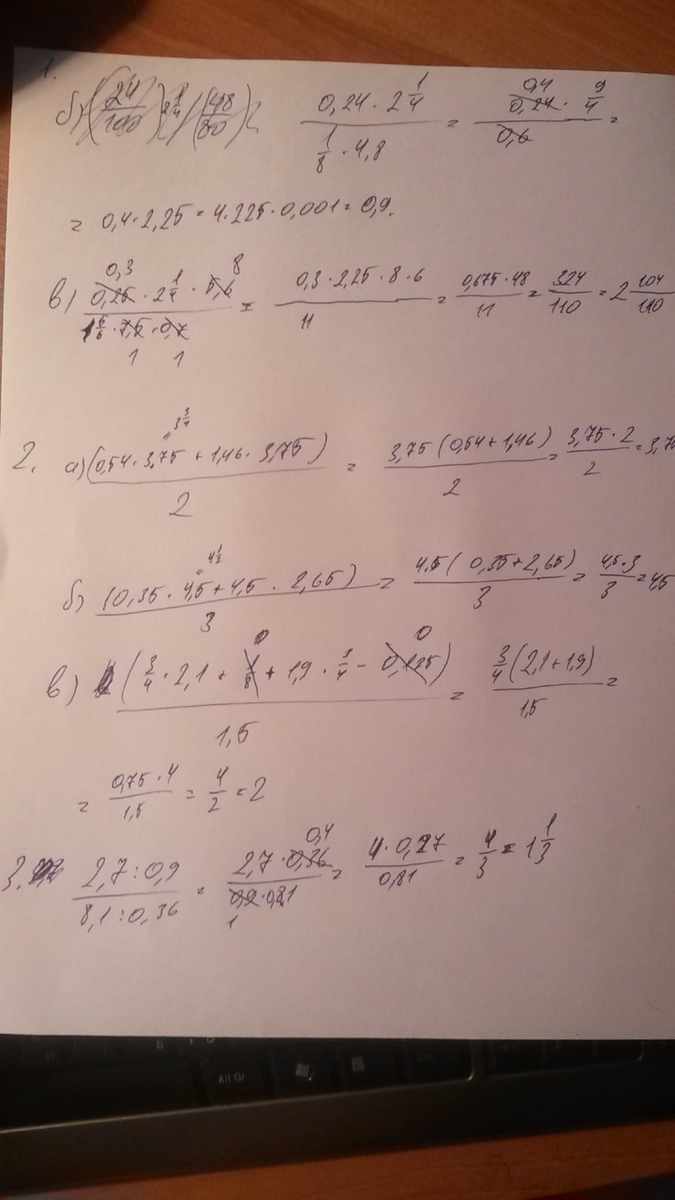 1.
б) (24/100) 2 1/4 / (48/80)
(0,24 · 2 1/4)/(1/8 · 4,8) = (0,4 0,24 · 9/4)/0,6 =
= 0,4 · 2,25 = 4 · 225 · 0,001 = 0,9.
0,3 8
в) (0,25 · 2 1/4 · 5,6)/(1 5/6 · 7,5 · 0,7) = (0,3 · 2,25 · 8 · 6)/11 = (0,675 · 48)/11 = 324/110 = 2 104/110
1 1
= 3 3/4
2. а) (0,54 · 3,75 + 1,46 · 3,75)/2 = 3,75 (0,54 + 1,46)/2 = (3,75 · 2)/2 = 3,7
= 4 1/2
б) (0,35 · 4,5 + 4,5 · 2,65)/3 = 4,5 (0,35 + 2,65)/3 = (4,5 · 3)/3 = 4,5
0 0
в) (3/4 · 2,1 + 1/8 + 1,9 · 3/4 - 0,125)/1,5 = 3/4 (2,1 + 1,9)/1,5 =
= (0,75 · 4)/1,5 = 4/2 = 2
0,4
3. (2,7 : 0,9)/(8,1 : 0,36) = (2,7 · 0,36)/(0,9 · 0,81) = (4 · 0,27)/0,81 = 4/3 = 1 1/3
1
All Gr